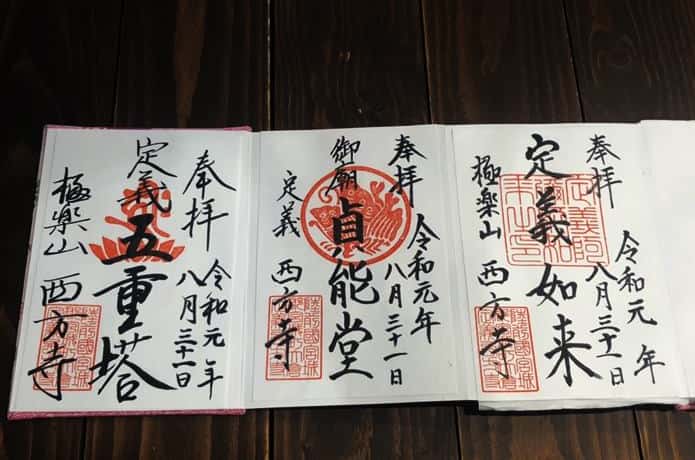 奉拝
令和元年
八月三十一日
定義如来
極楽山
西方寺
奉拝
令和元年
八月三十一日
御廟
貞能堂
定義
西方寺
奉拝
令和元年
八月三十一日
定義
五重塔
極楽山
西方寺